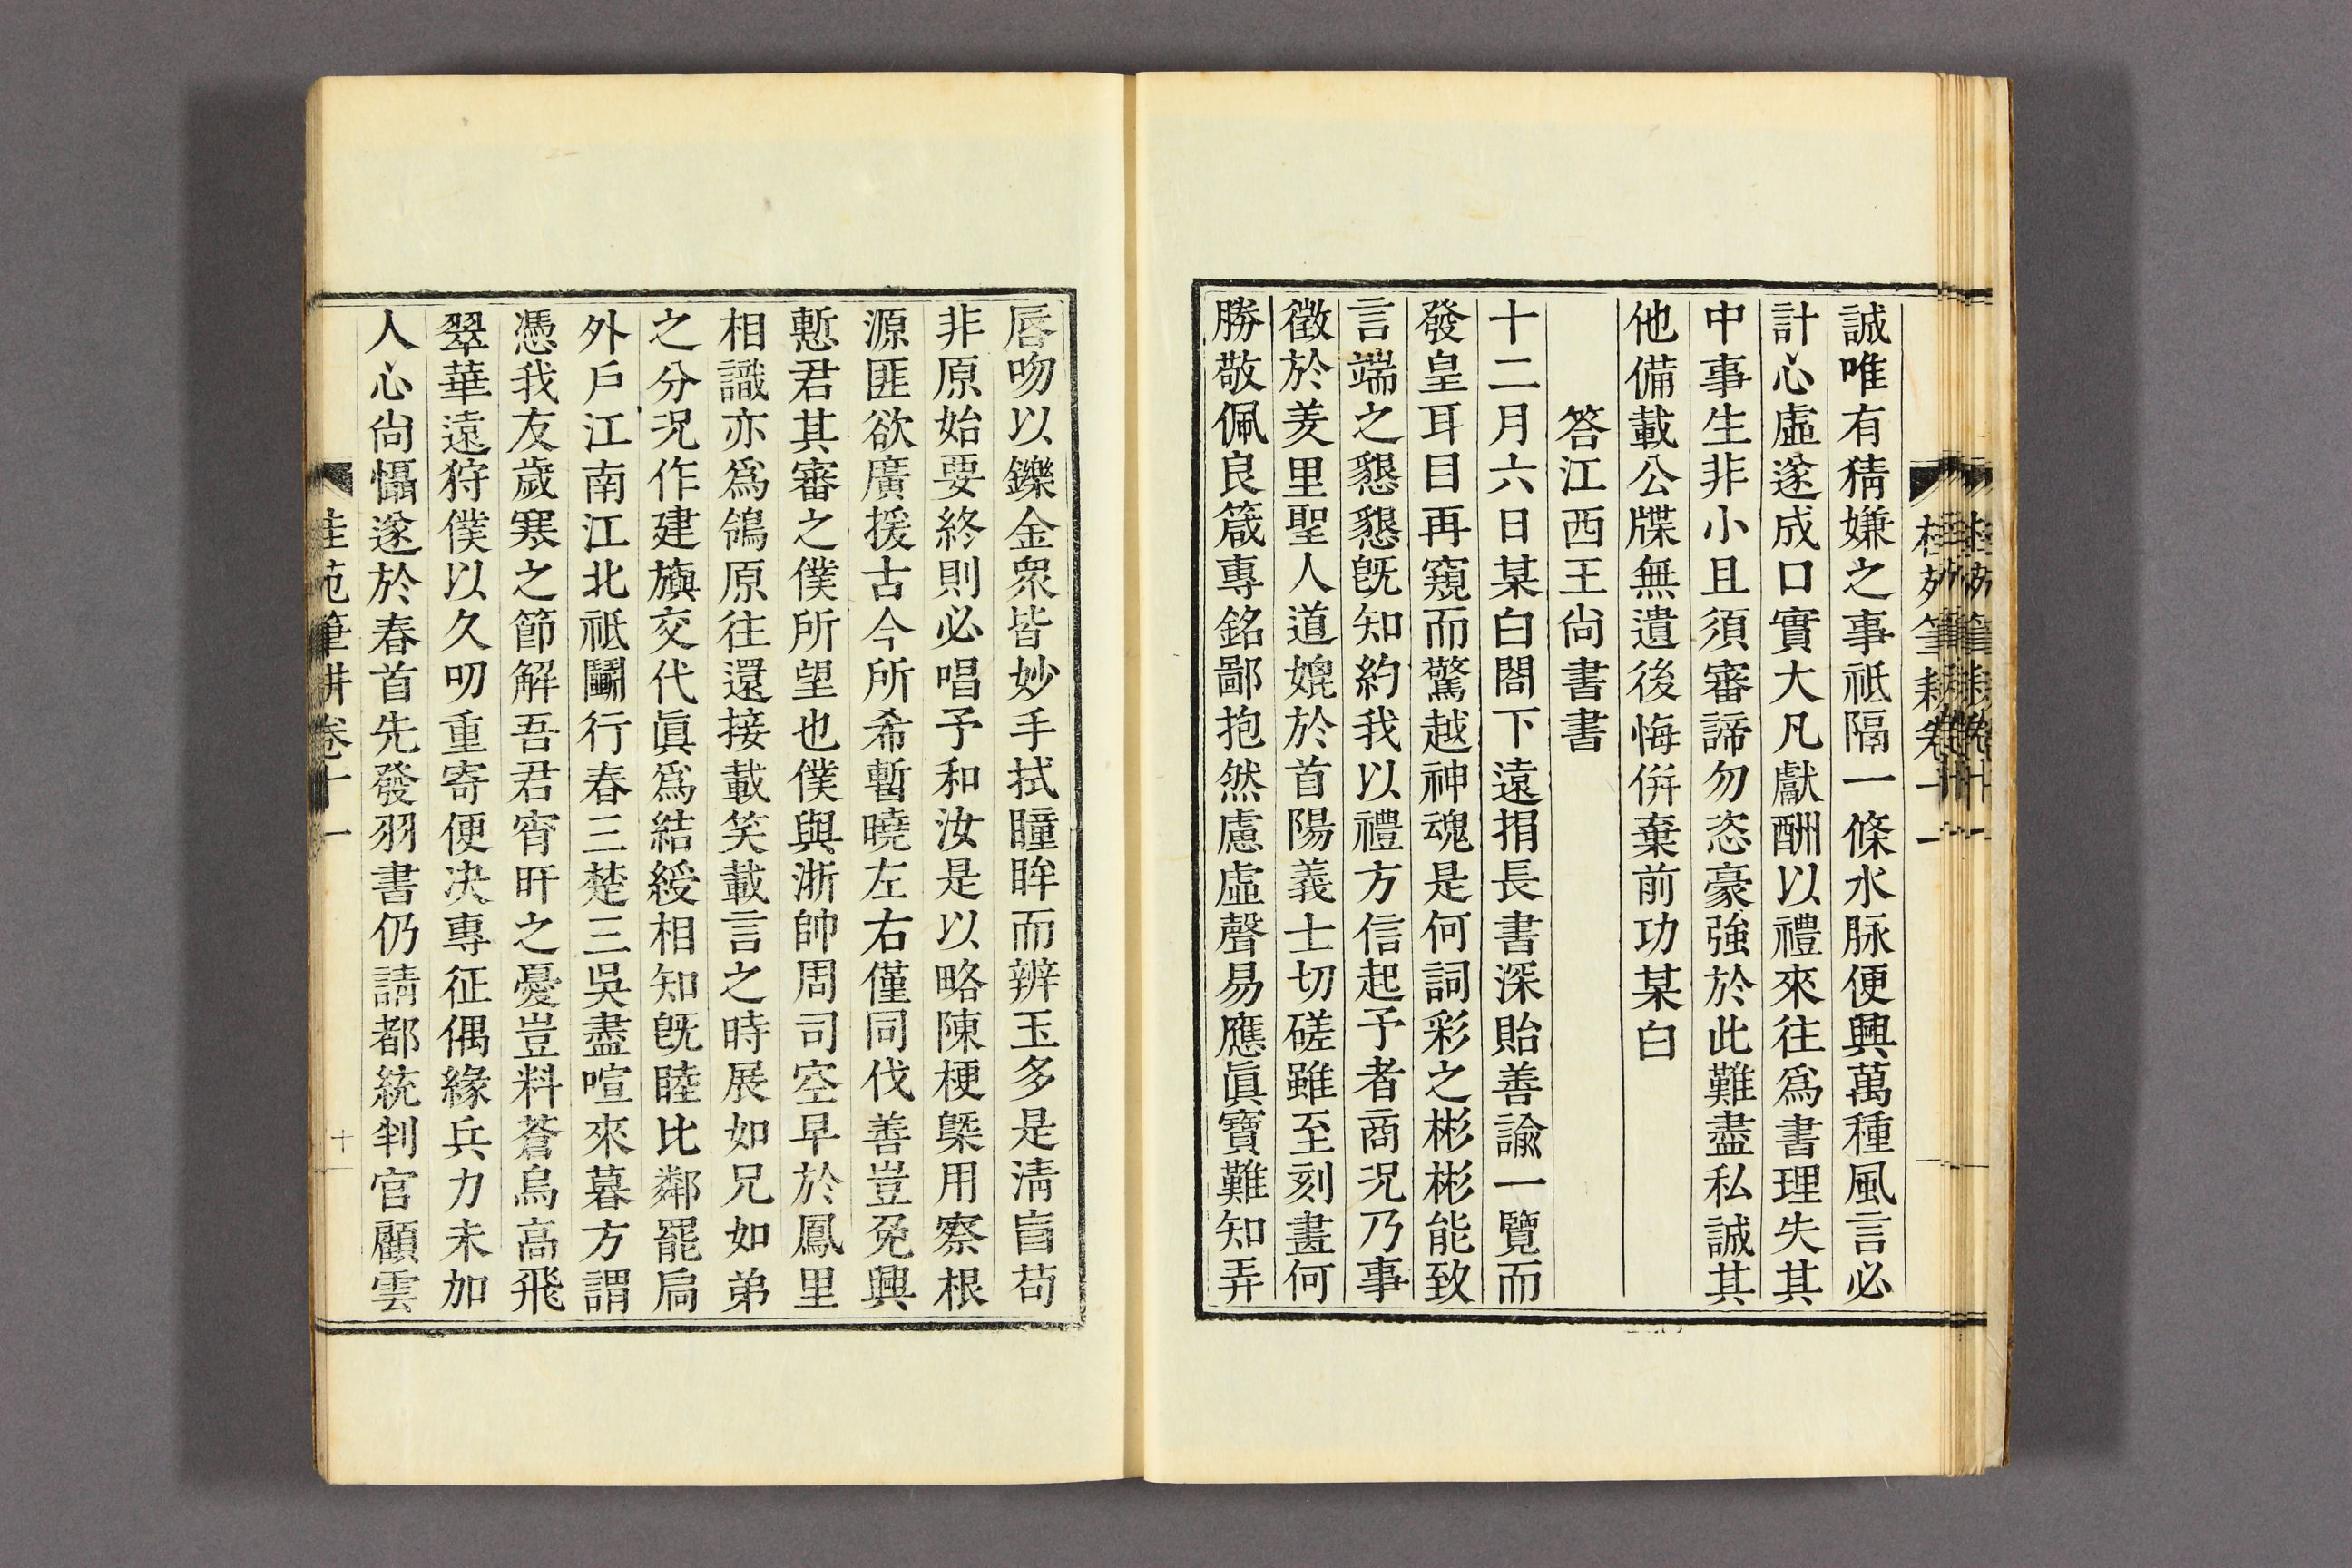 誠唯有猜嫌之事祗隔一條水脉便興萬種風言必
計心虛遂成口實大凡獻酬以禮來往爲書理失其
中事生非小且須審諦勿恣豪強於此難盡私誠其
他備載公牒無遺後悔倂棄前功某白
答江西王尙書書
十二月六日某白閤下遠捐長書深貽善諭一覽而
發皇耳目再窺而驚越神魂是何詞彩之彬彬能致
言端之懇懇旣知約我以禮方信起予者商况乃事
徵於羑里聖人道媲於首陽義士切磋雖至刻畫何
勝敬佩良箴專銘鄙抱然慮虛聲易應眞寶難知弄
唇吻以鑠金衆皆妙手拭瞳眸而辨玉多是淸盲苟
非原始要終則必唱予和汝是以略陳梗槩用察根
源匪欲廣援古今所希暫曉左右僅同伐善豈免興
慙君其審之僕所望也僕與浙帥周司空早於鳳里
相識亦爲鴒原往還接載笑載言之時展如兄如弟
之分况作建旟交代眞爲結綬相知旣睦比鄰罷扃
外戶江南江北祗鬭行春三楚三吳盡喧來暮方謂
憑我友歲寒之節解吾君宵旰之憂豈料蒼烏高飛
翠華遠狩僕以久叨重寄便决專征偶緣兵力未加
人心尙懾遂於春首先發羽書仍請都統判官顧雲
桂苑筆耕卷十一
十